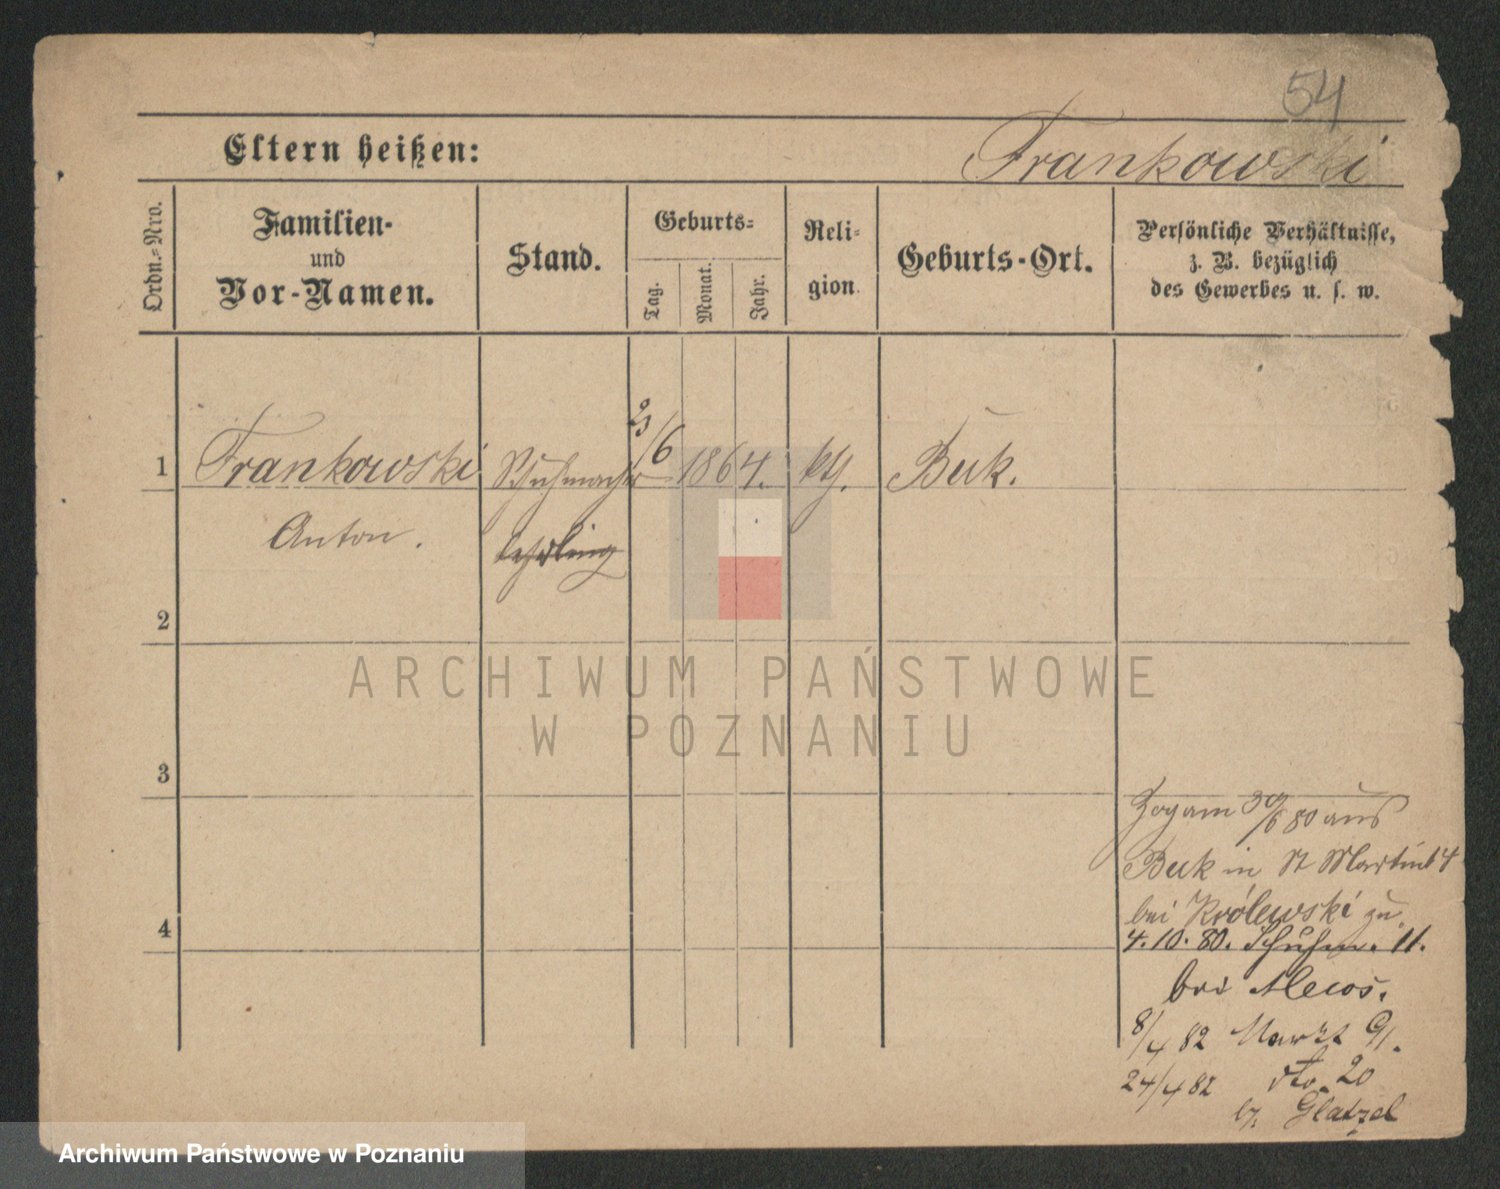 54
Eltern heißen:
Frankowski
Ordn.-Nro.
Familien-
und
Vor-Namen.
Stand.
Geburts-
Tag.
Monat.
Jahr.
Reli-
gion.
Geburts-Ort.
Persönliche Verhältnisse,
z. B. bezüglich
des Gewerbes u. s. w.
1 Frankowski Schuhmacher 1864. kth. Buk.
Anton. lehrling
2
3
4
Zog am 30/6 80 aus
Buk in St Martin 4
bei Królewski zu.
4.10.80. Schuhm. 11.
bei
8/4 82 Markt 91.
24/4 82 dto. 20
b. Glatzel
ARCHIWUM PAŃSTWOWE
W POZNANIU
Archiwum Państwowe w Poznaniu